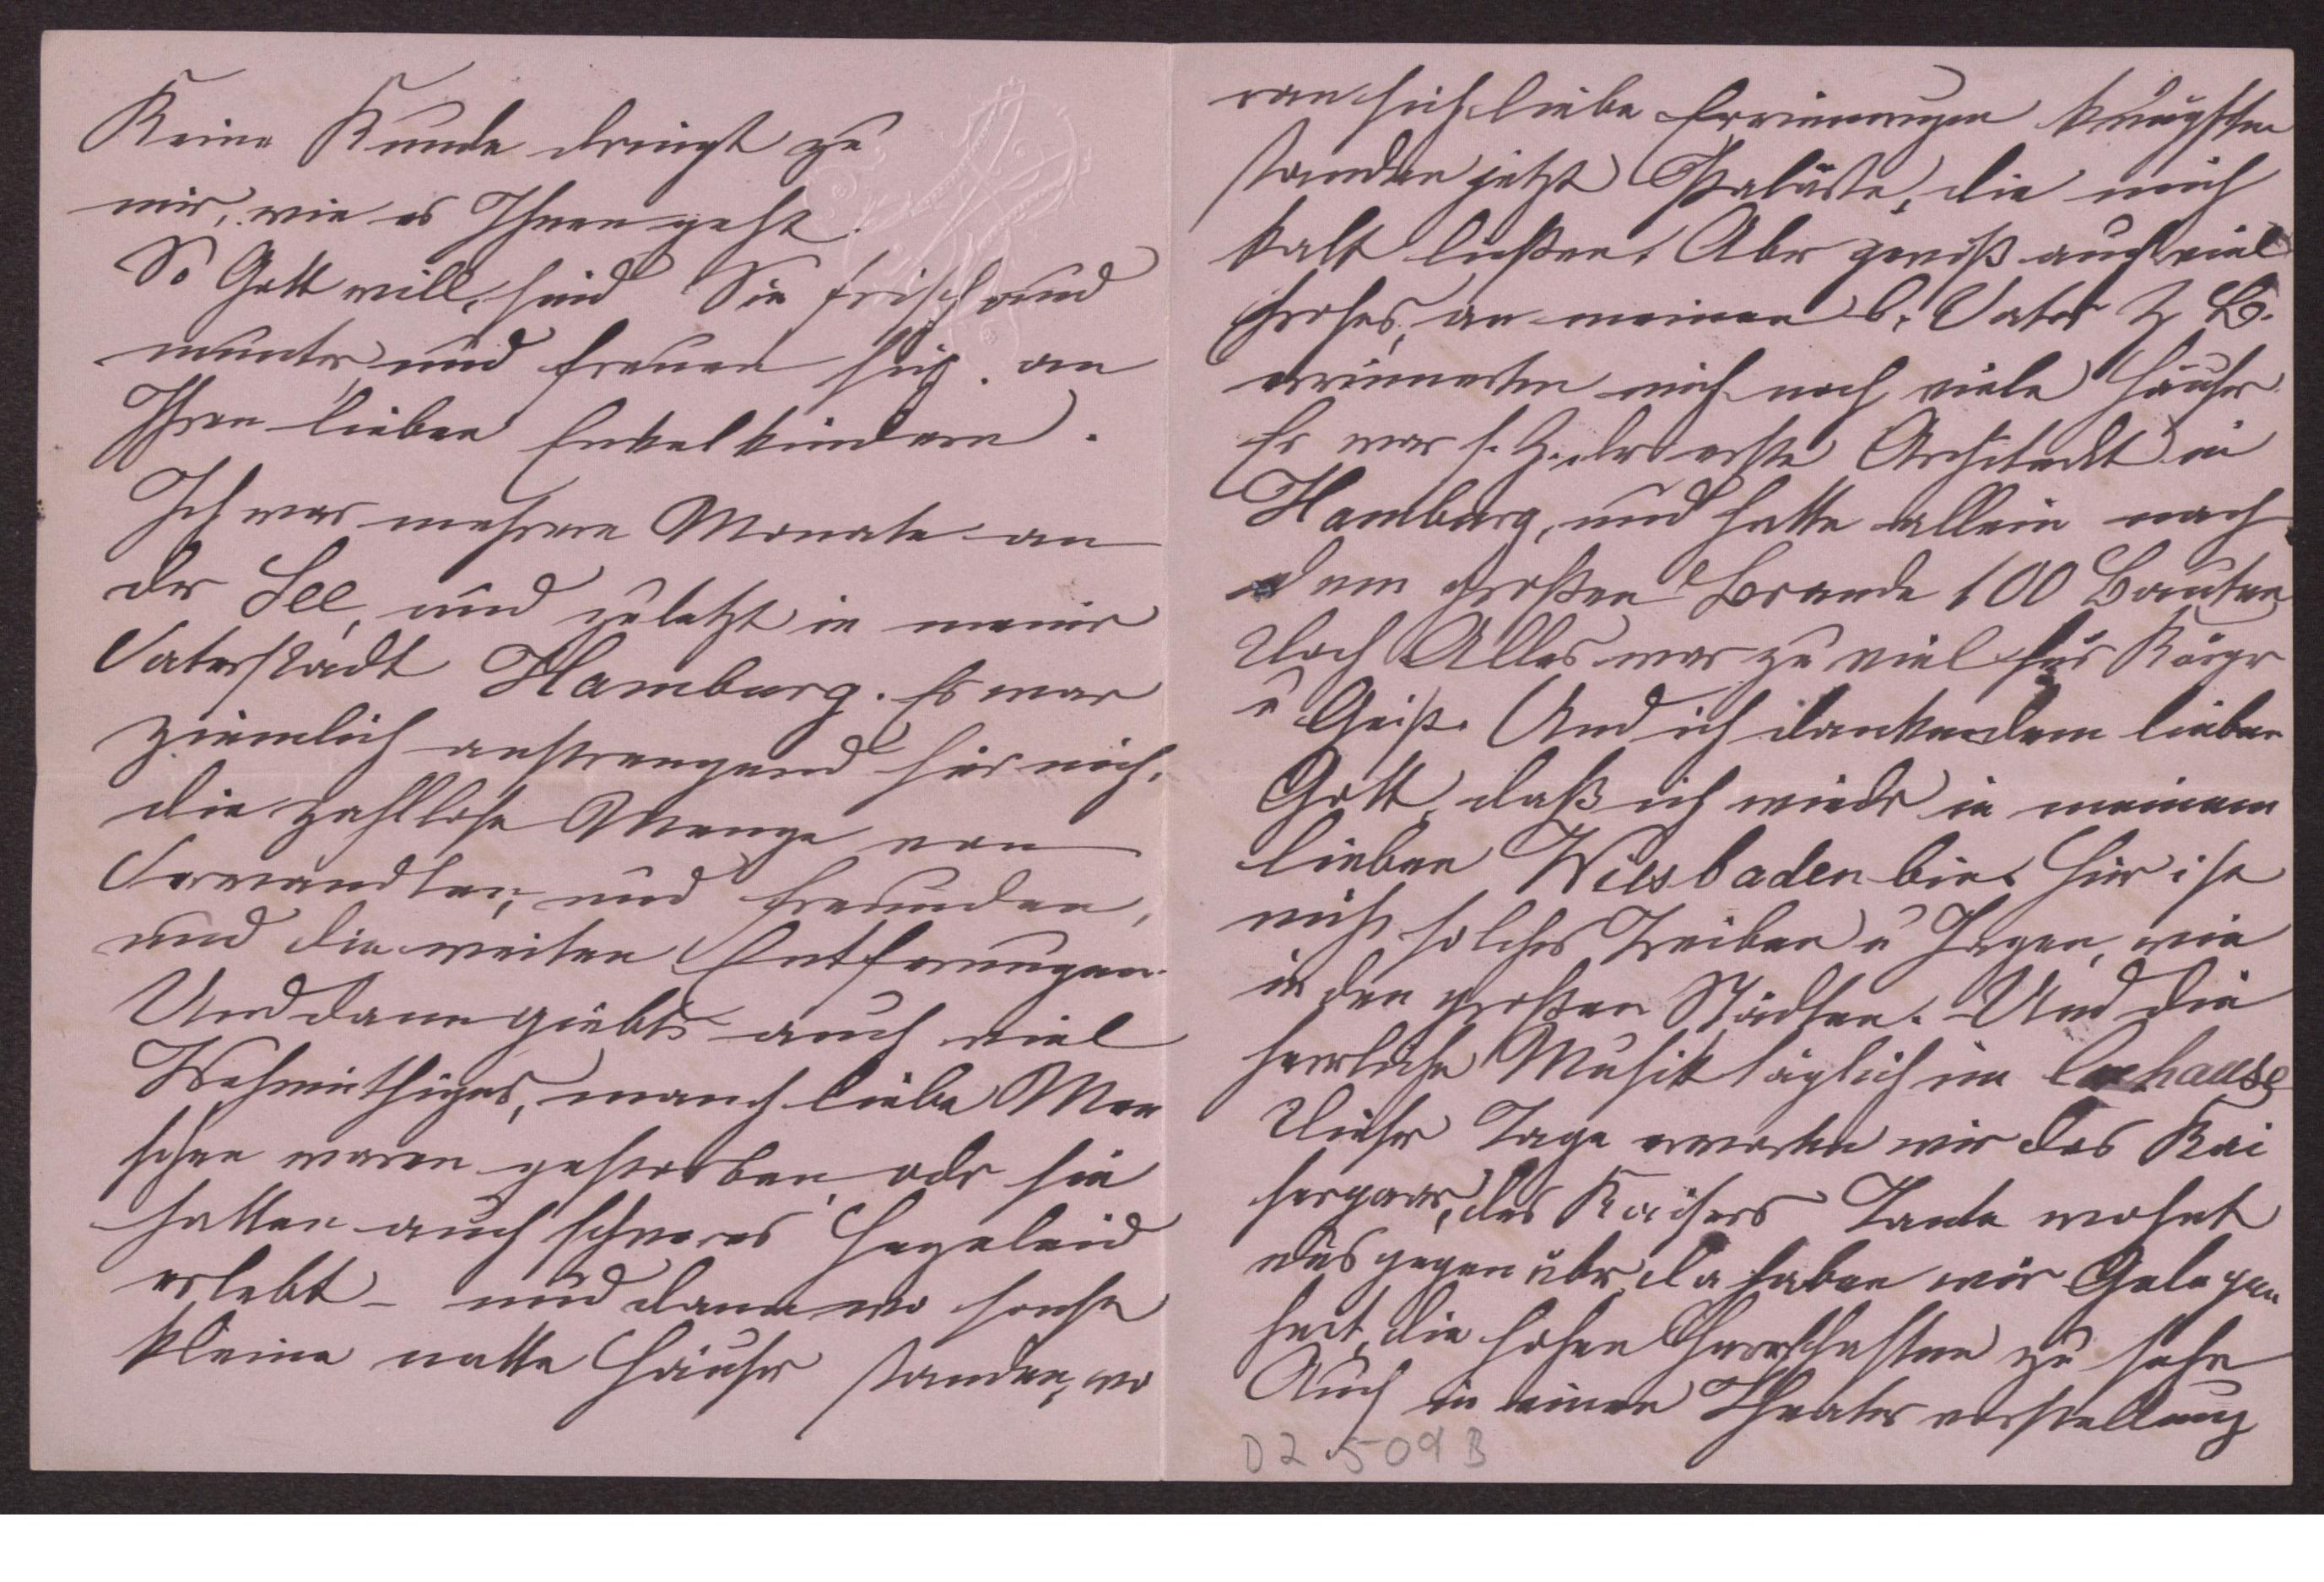 Keine Kunde dringt zu
mir, wie es Ihnen geht.
So Gott will, sind Sie frisch und
munter und freuen sich an
Ihren lieben Enkelkindern.
Ich war mehrere Monate an
der See, und zuletzt in meiner
Vaterstadt Hamburg. Es war
ziemlich anstrengend für mich,
die zahllose Menge von
Verwandten, und Freunden,
und die weiten Entfernungen.
Und dann giebt's auch viel
Wehmüthiges, manch liebe Men
schen waren gestorben, oder sie
hatten auch schweres Herzeleid
erlebt – und dann wo sonst
kleine nette Häuser standen, wo
ran sich liebe Erinnerungen knüpften
standen jetzt Paläste, die mich
kalt ließen. Aber gewiß auch viel
Frohes, an meinen l. Vater z. B.
erinnerten mich noch viele Häuser.
Er war s. Z. der erste Architect in
Hamburg, und hatte allein nach
dem großen Brande 100 Bauten
Doch Alles war zu viel für Körper
u Geist. Und ich danke dem lieben
Gott, daß ich wieder in meinem
lieben Wiesbaden bin. Hier ist
nicht solches Treiben u Jagen, wie
in den großen Städten. Und die
herrliche Musik täglich im Curhause
Dieser Tage erwarten wir das Kai
serpaar, des Kaisers Tante wohnt
uns gegenüber, da haben wir Gelegen
heit, die hohen Herrschaften zu sehn
Auch in einer Theatervorstellung
DZ 509 B